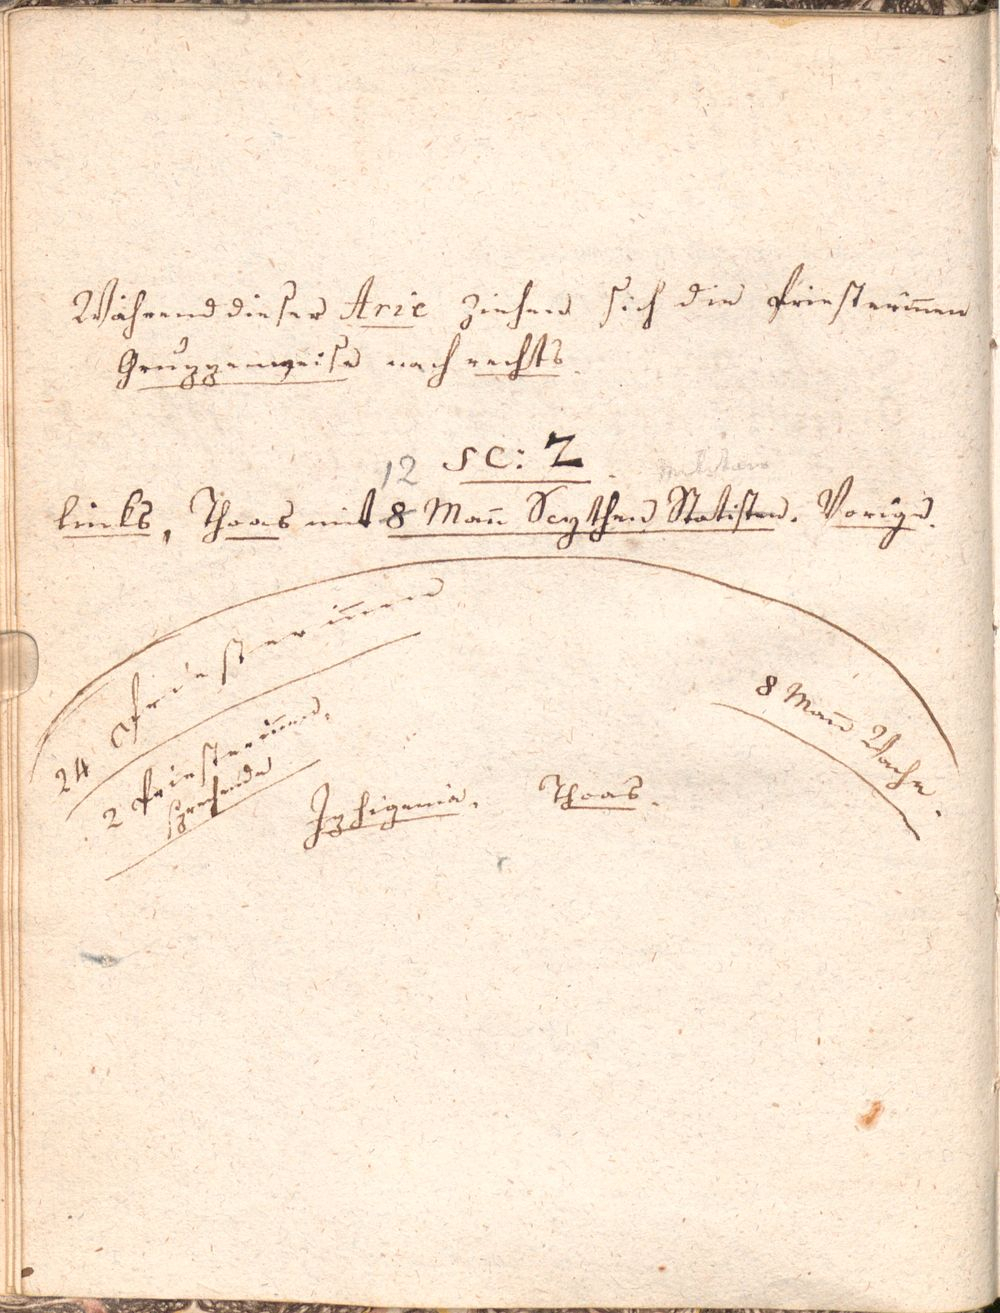 Während dieser Arie ziehen sich die Priesterin̅en
Gruppenweise nach rechts.
12 SC: 2
links, Thoas mit 8 Man̅ Scythen Statisten. Vorige.
24 Priesterin̅en
2 Priesterin̅en,
sprechende
Iphigenia. Thoas.
8 Man̅ Wache.